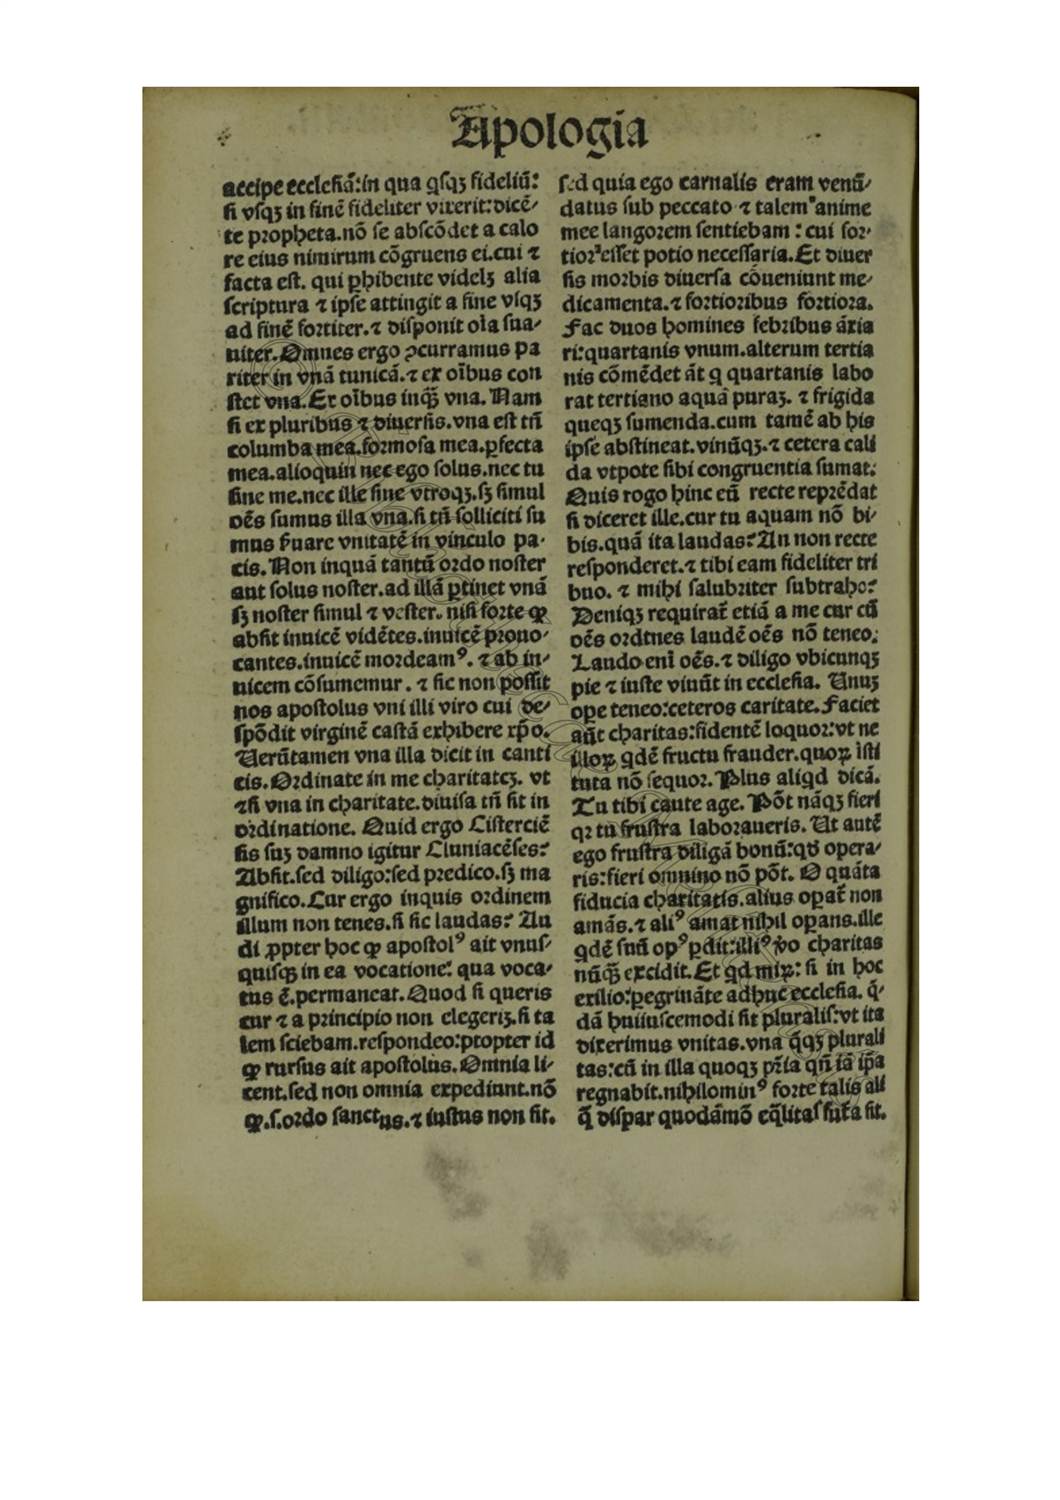 Apologia
accipe ecclesiā:in qua qͥsqꝫ fideliū:
si vsqꝫ in finē fideliter vixerit:dicē⸗
te propheta.nō se abscōdet a calo
re eius nimirum cōgruens ei.cui ⁊
facta est. qui ꝑhibente videlꝫ alia
scriptura ⁊ ipse attingit a fine vsqꝫ
ad finē fortiter.⁊ disponit oīa sua⸗
uiter.Omnes ergo ꝯcurramus pa
riter in vnā tunicā.⁊ ex oībus con
stet vna.Ex oībus inqͣꝫ vna. Nam
si ex pluribus ⁊ diuersis.vna est tn̄
columba mea.formosa mea.ꝑfecta
mea.alioquin nec ego solus.nec tu
sine me.nec ille sine vtroqꝫ.sꝫ simul
oēs sumus illa vna.si tn̄ solliciti su
mus ẜuare vnitatē in vinculo pa⸗
cis. Non inquā tantū ordo noster
aut solus noster.ad illā ꝑtinet vnā
sꝫ noster simul ⁊ vester. nisi forte ꝙ
absit inuicē vidētes.inuicē prouo⸗
cantes.inuicē mordeamꝰ. ⁊ ab in⸗
uicem cōsumemur. ⁊ sic non possit
nos apostolus vni illi viro cui de⸗
spōdit virginē castā exhibere xp̄o.
Uerūtamen vna illa dicit in canti
cis.Ordinate in me charitateꝫ. vt
⁊si vna in charitate.diuisa tn̄ sit in
ordinatione. Quid ergo Cisterciē
sis suꝫ damno igitur Cluniacēses?
Absit.sed diligo:sed predico.sꝫ ma
gnifico.Cur ergo inquis ordinem
illum non tenes.si sic laudas? Au
di ꝓpter hoc ꝙ apostolꝰ ait vnus⸗
quisqꝫ in ea vocatione: qua voca⸗
tus ē.permaneat.Quod si queris
cur ⁊ a principio non elegerīꝫ.si ta
lem sciebam.respondeo:ptopter id
ꝙ rursus ait apostolus.Omnia li⸗
cent.sed non omnia expediunt.nō
ꝙ.s.ordo sanctus.⁊ iustus non sit.
sed quia ego carnalis eram venū⸗
datus sub peccato ⁊ talem anime
mee langorem sentiebam : cui for⸗
tior esset potio necessaria.Et diuer
sis morbis diuersa cōueniunt me⸗
dicamenta.⁊ fortioribus fortiora.
Fac duos homines febribus āxia
ri:quartanis vnum.alterum tertia
nis cōmēdet āt qͥ quartanis labo
rat tertiano aquā puraꝫ. ⁊ frigida
queqꝫ sumenda.cum tamē ab his
ipse abstineat.vinūqꝫ.⁊ cetera cali
da vtpote sibi congruentia sumat.
Quis rogo hinc eū recte reprēdat
si diceret ille.cur tu aquam nō bi⸗
bis.quā ita laudas?An non recte
responderet.⁊ tibi eam fideliter tri
buo. ⁊ mihi salubriter subtraho?
Deniqꝫ requirat̄ etiā a me cur cū
oēs ordtnes laudē oēs nō teneo.
Laudo enī oēs.⁊ diligo vbicunqꝫ
pie ⁊ iuste viuūt in ecclesia. Unuꝫ
ope teneo:ceteros caritate.Faciet
aūt charitas:fidentē loquor:vt ne
illoꝝ qͥdē fructu frauder.quoꝝ īsti
tuta nō sequor. Plus aliqͥd dicā.
Tu tibi caute age. Pōt nāqꝫ fieri
qꝛ tu frustra laboraueris. Ut autē
ego frustra diligā bonū:qđ opera⸗
ris:fieri omnino nō pōt. O quāta
fiducia charitatis.alius oꝑat̄ non
amās.⁊ aliꝰ amat nihil oꝑans.ille
qͥdē suū opꝰ ꝑdit:illiꝰ ꝟo charitas
nūqͣꝫ excidit.Et qͥd miꝝ: si in hoc
exilio:ꝑegrināte adhuc ecclesia. q̄⸗
dā huiuscemodi sit pluralis:vt ita
dixerimus vnitas.vna q̄qꝫ plurali
tas:cū in illa quoqꝫ pr̄ia qn̄ iā ip̄a
regnabit.nihilominꝰ forte talis ali
q̄ dispar quodāmō eq̄litas fut̄a sit.